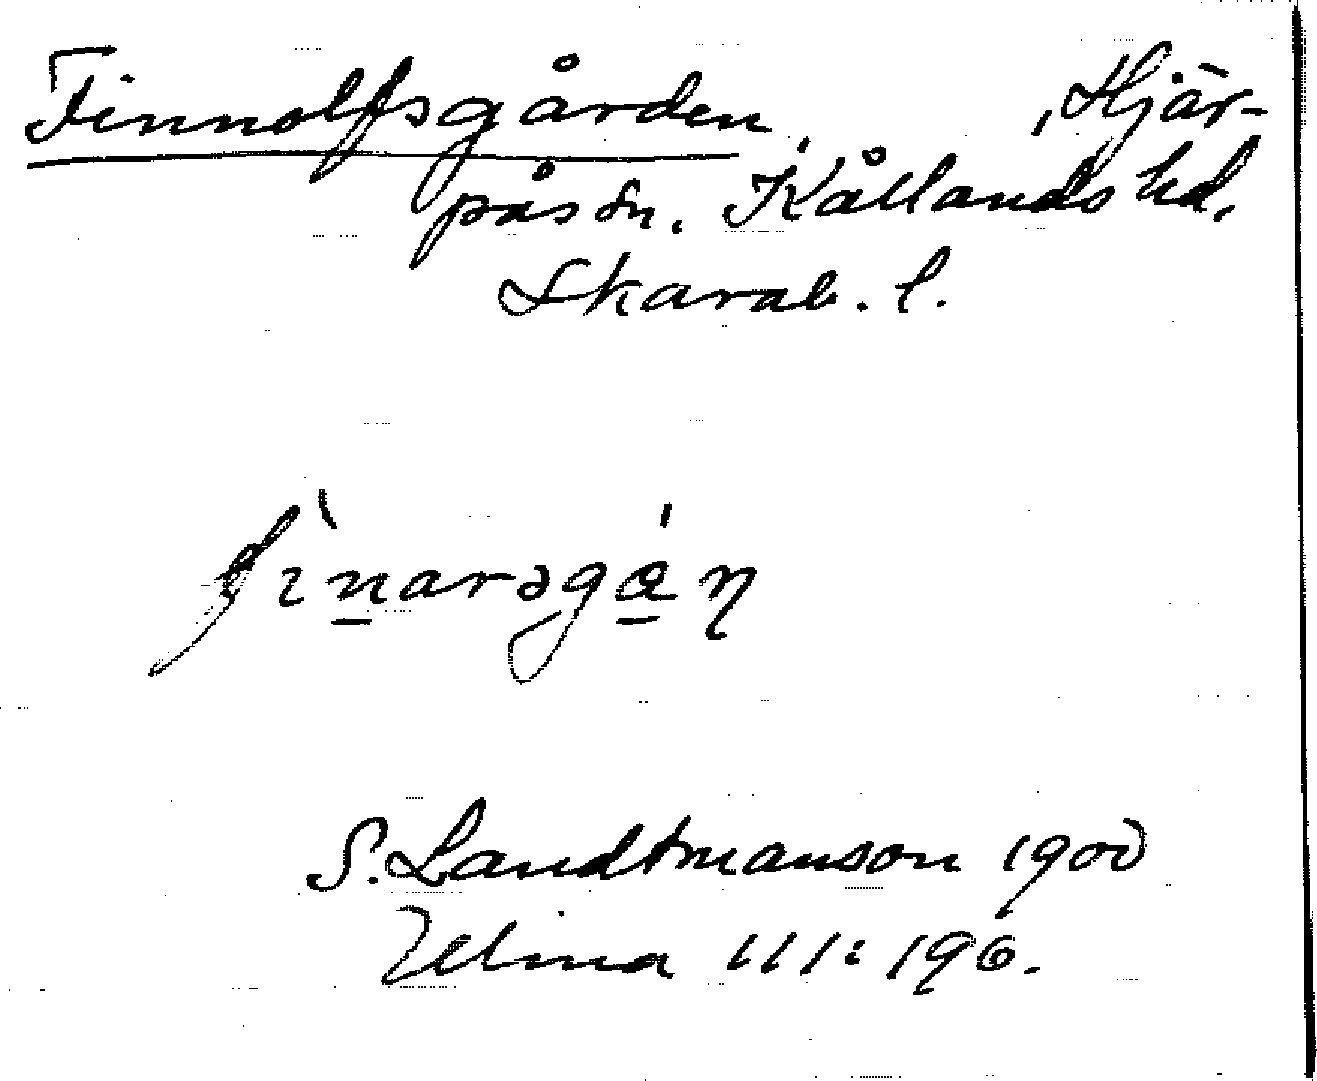 Finnolfsgården, Hjär-
pås sn. Kållands hd.
Skarab. l.
fìnarəgá̱n
S. Landtmanson 1900
Ulma 111:196.